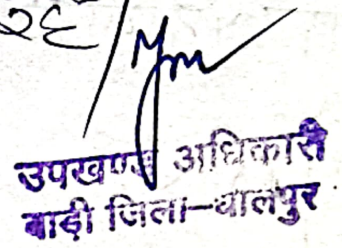 २६/
उपखण्ड अधिकारी
बाड़ी जिला-धौलपुर